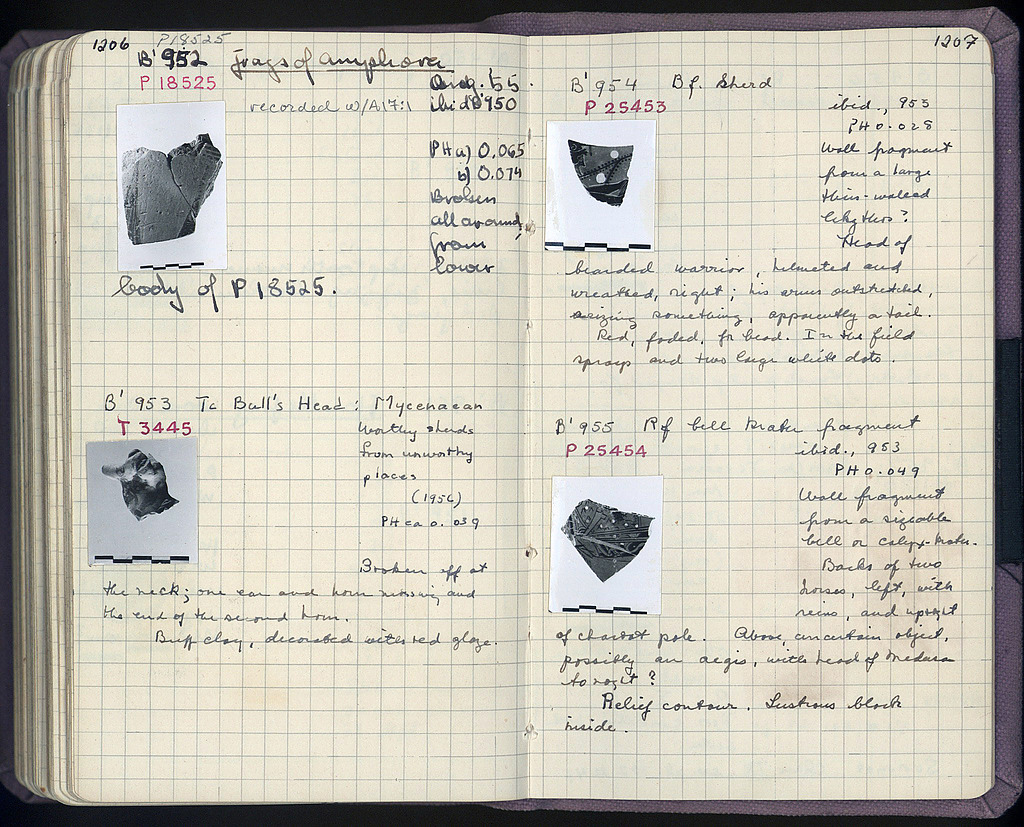 1206 P18525
B' 952 frags of amphora
P 18525
Aug. '55.
recorded w/A17:1 ibid B'950
PH a) 0.065
b) 0.074
Broken
all around,
from
lower
body of P 18525.
B' 953 Tc Bull's Head: Mycenaean
T 3445
Worthy sherds
from unworthy
places
(1956)
PH ca 0.039
Broken off at
the neck; one ear and horn missing and
the end of the second horn.
Buff clay, decorated with red glaze.
1207
B' 954 Bf. Sherd
P 25453
ibid., 953
PH 0.028
Wall fragment
from a large
thin-walled
lekythos?
Head of
bearded warrior, helmeted and
wreathed, right; his arms outstretched,
seizing something, apparently a tail.
Red, faded, for beard. In the field
sprays and two large white dots.
B' 955 Rf bell krater fragment
P 25454
ibid., 953
PH 0.049
Wall fragment
from a sizeable
bell or calyx-krater.
Backs of two
horses, left, with
reins, and upright
of chariot pole. Above, uncertain object,
possibly an aegis, with head of Medusa
to right?
Relief contour. Lustrous black
inside.